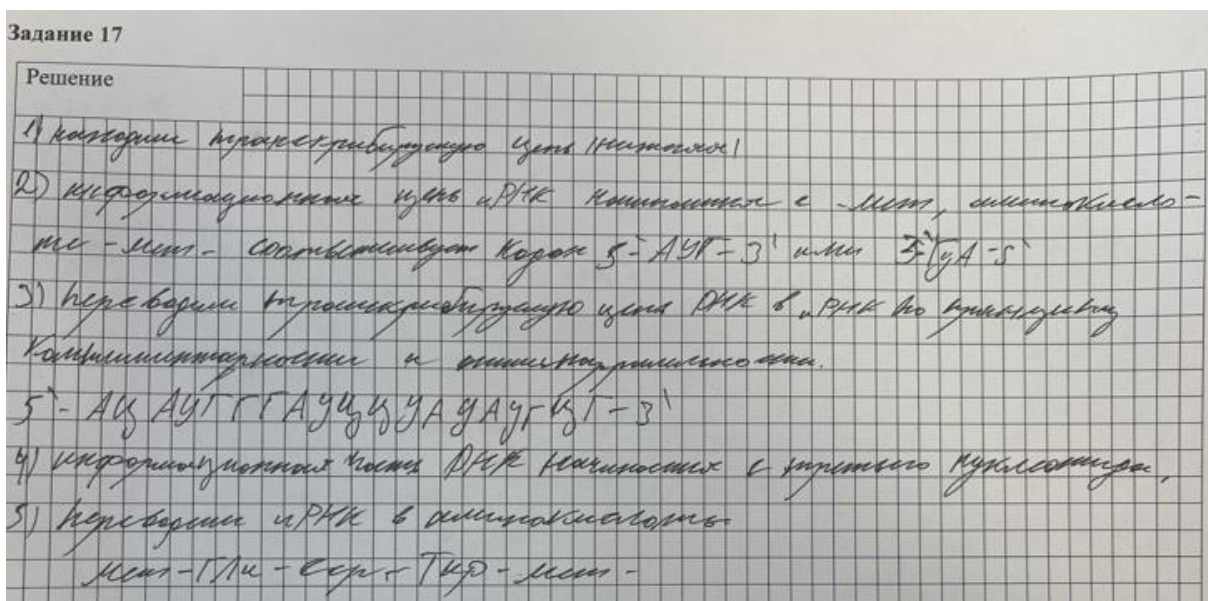 Задание 17
Решение
1) находим транскрибируемую цепь (нижняя)
2) информационная цепь иРНК начинается с -мет, аминокисло-
те -мет- соответствует кодон 5`-АУГ-3` или 3`-ГУА-5`
3) переводим транскрибируемую цепь ДНК в иРНК по принципу
комплиментарности и антипараллельности.
5`- АЦ АУГ ГГАУЦЦУАУАУГЦГ-3`
4) информационная часть ДНК начинается с третьего нуклеотида,
5) переводим иРНК в аминокислоты
мет-Гли-сер-Тир-мет-